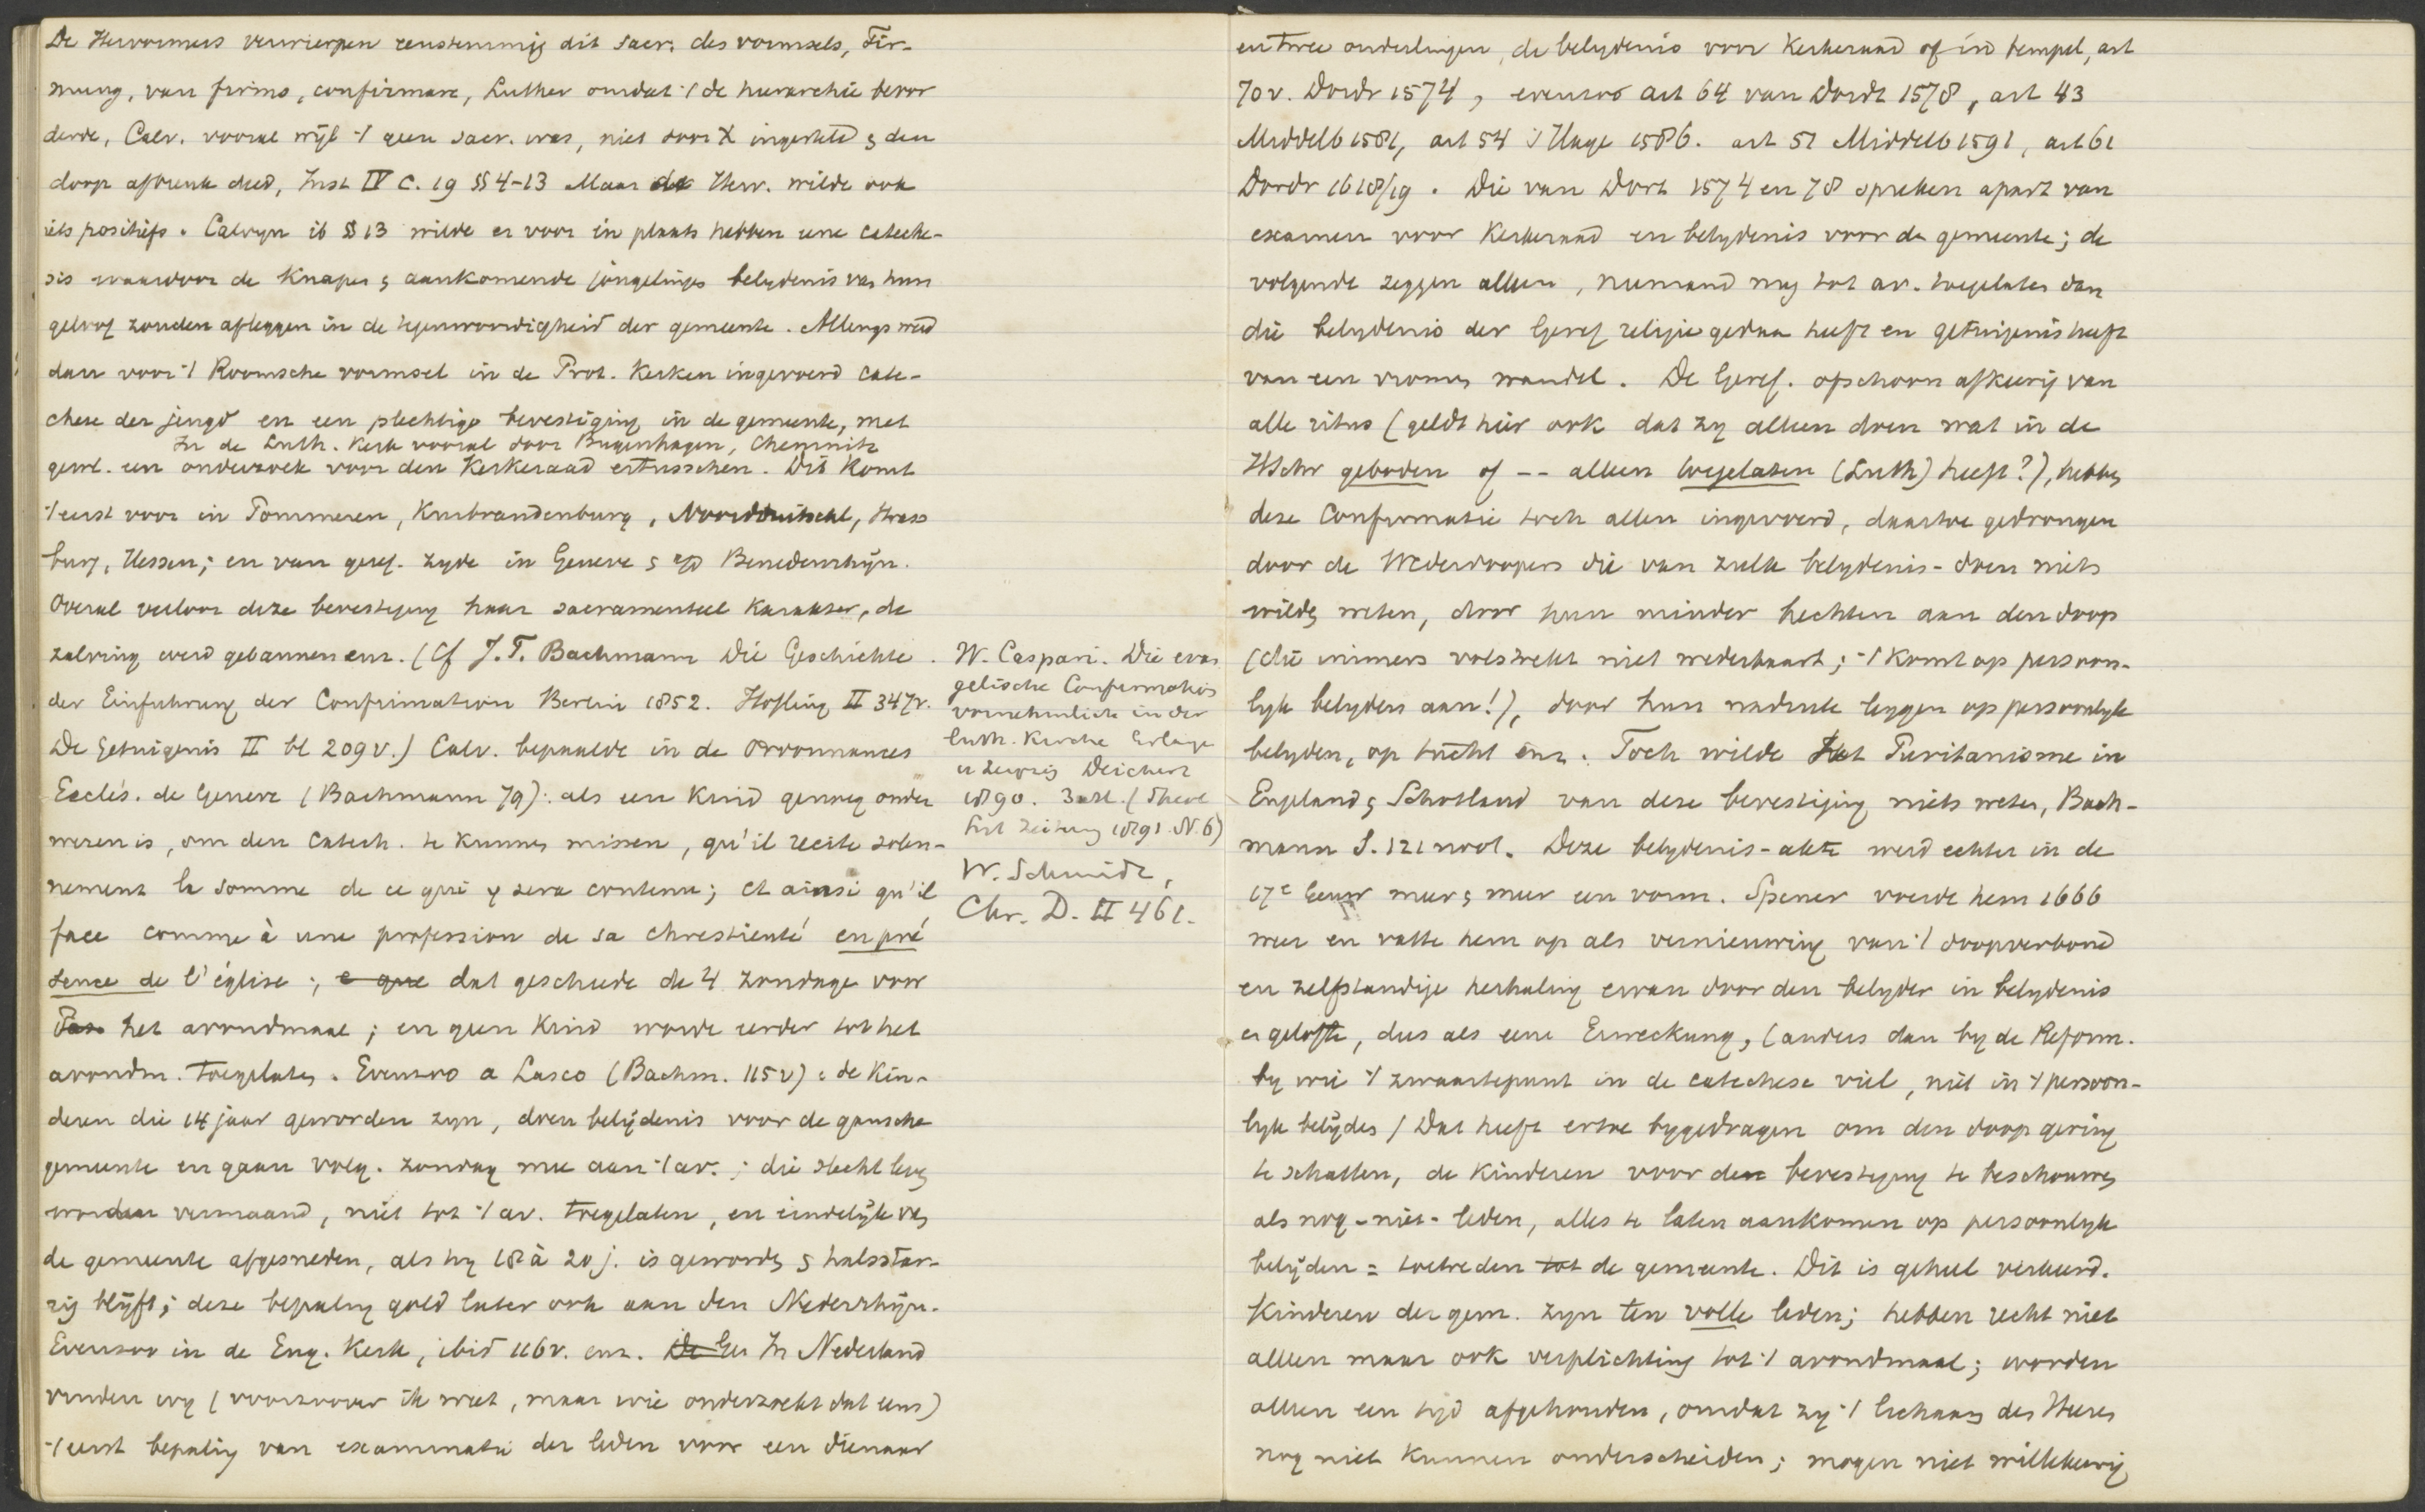 De Hervormers verwierpen eenstemmig dit sacr. des vormsels, Fir-
mung, van firmo, confirmare, Luther omdat 't de hierarchie bevor
derde, Calv. vooral wijl 't geen sacr. was, niet door X ingesteld & den
doop afbreuk deed, Inst IV c. 19 §§ 4-13 Maar de Herv. wilde ook
iets positiefs. Calvyn ib § 13 wilde er voor in plaats hebben eene cateche-
sis waardoor de knapen & aankomende jongelingen belydenis van hun
geloof zouden afleggen in de tegenwoordigheid der gemeente. Allengs werd
dan voor 't Roomsche vormsel in de Prot. Kerken ingevoerd cate-
chese der jeugd en een plechtige bevestiging in de gemeente, met
In de Luth. Kerk vooral door Bugenhagen, Chemnitz
gewl. een onderzoek voor den Kerkeraad ertusschen. Dit komt
't eerst voor in Pommeren, Kurbrandenburg, Noordduitschl, Strass
burg, Hessen; en van geref. zyde in Geneve & a/d Benedenrhijn.
Overal verloor deze bevestiging haar sacramenteel karakter, de
zalving werd gebannen enz. (Cf J. F. Bachmann Die Geschichte
der Einfuhrung der Confirmation Berlin 1852. Hofling II 347v.
De Getuigenis II bl 209v.) Calv. bepaalde in de Ordonnances
Ecclés. de Geneve (Bachmann 79): als een kind genoeg onder
wezen is, om den catech. te kunnen missen, qu'il recite solen-
nement la somme de ce qui y sera contenu; et ainsi qu'il
face comme à une profession de sa chrestienté en pré
sence de l'église; e que dat geschiede de 4 zondage voor
Pas het avondmaal; en geen kind worde eerder tot het
avondm. toegelaten. Evenzoo a Lasco (Bachm. 115v): de kin-
deren die 14 jaar geworden zyn, doen belijdenis voor de gansche
gemeente en gaan volg. zondag mee aan 't av.; die slecht leven
worden vermaand, niet tot 't av. toegelaten, en eindelijk van
de gemeente afgesneden, als hy 18 à 20 j. is geworden & halsstar-
rig blijft; deze bepaling gold later ook aan den Nederrhijn.
Evenzoo in de Eng. Kerk, ibid 116v. enz. De Ger In Nederland
vinden wy (voorzoover ik weet, maar wie onderzoekt dat eens)
't eerst bepaling van examinatie der leden voor een dienaar
W. Caspari. Die evan
gelische Confirmation
vornehmlich in der
luth. Kirche Erlange
u Leipzig Deichert
1890. 3 Mk. (Theol
Lit Zeitung 1891 N. 6)
W. Schmidt,
Chr. D. II 461.
en twee onderlingen, de belydenis voor Kerkeraad of in d tempel, art
70v. Dordr 1574, evenzoo art 64 van Dordt 1578, art 43
Middelb 1581, art 54 's Hage 1586. art 51 Middelb 1591, art 61
Dordr 1618/19. Die van Dort 1574 en 78 spreken apart van
examen voor Kerkeraad en belydenis voor de gemeente; de
volgende zeggen alleen, niemand mag tot av. toegelaten dan
die belydenis der Geref religie gedaan heeft en getuigenis heeft
van een vromen wandel. De Geref. ofschoon afkeerig van
alle ritus (geldt hier ook dat zy alleen doen wat in de
HSchr geboden of -- alleen toegelaten (Luth) heeft?), hebben
deze Confirmatie toch allen ingevoerd, daartoe gedrongen
door de Wederdoopers die van zulk belydenis-doen niets
wilden weten, door hun minder hechten aan den doop
(die immers volstrekt niet wederbaart; 't komt op persoon-
lyk belyden aan!), door hun nadruk leggen op persoonlyk
belyden, op tucht enz. Toch wilde het Puritanisme in
Engeland & Schotland van deze bevestiging niets weten, Bach-
mann S. 121 noot. Deze belydenis-akte werd echter in de
17e eeuw meer & meer een vorm. Spener voerde hem 1666
weer en vatte hem op als vernieuwing van 't doopverbond
en zelfstandige herhaling ervan door den belyder in belydenis
en gelofte, dus als eene Erweckung, (anders dan by de Reform.
by wie 't zwaartepunt in de catechese viel, niet in 't persoon-
lyk belijden) Dat heeft ertoe bygedragen om den doop gering
te schatten, de kinderen voor de bevestiging te beschouwen
als nog-niet-leden, alles te laten aankomen op persoonlyk
belijden = toetreden tot de gemeente. Dit is geheel verkeerd.
Kinderen der gem. zyn ten volle leden; hebben recht niet
alleen maar ook verplichting tot 't avondmaal; worden
alleen een tijd afgehouden, omdat zy 't lichaam des Heeren
nog niet kunnen onderscheiden; mogen niet willekeurig